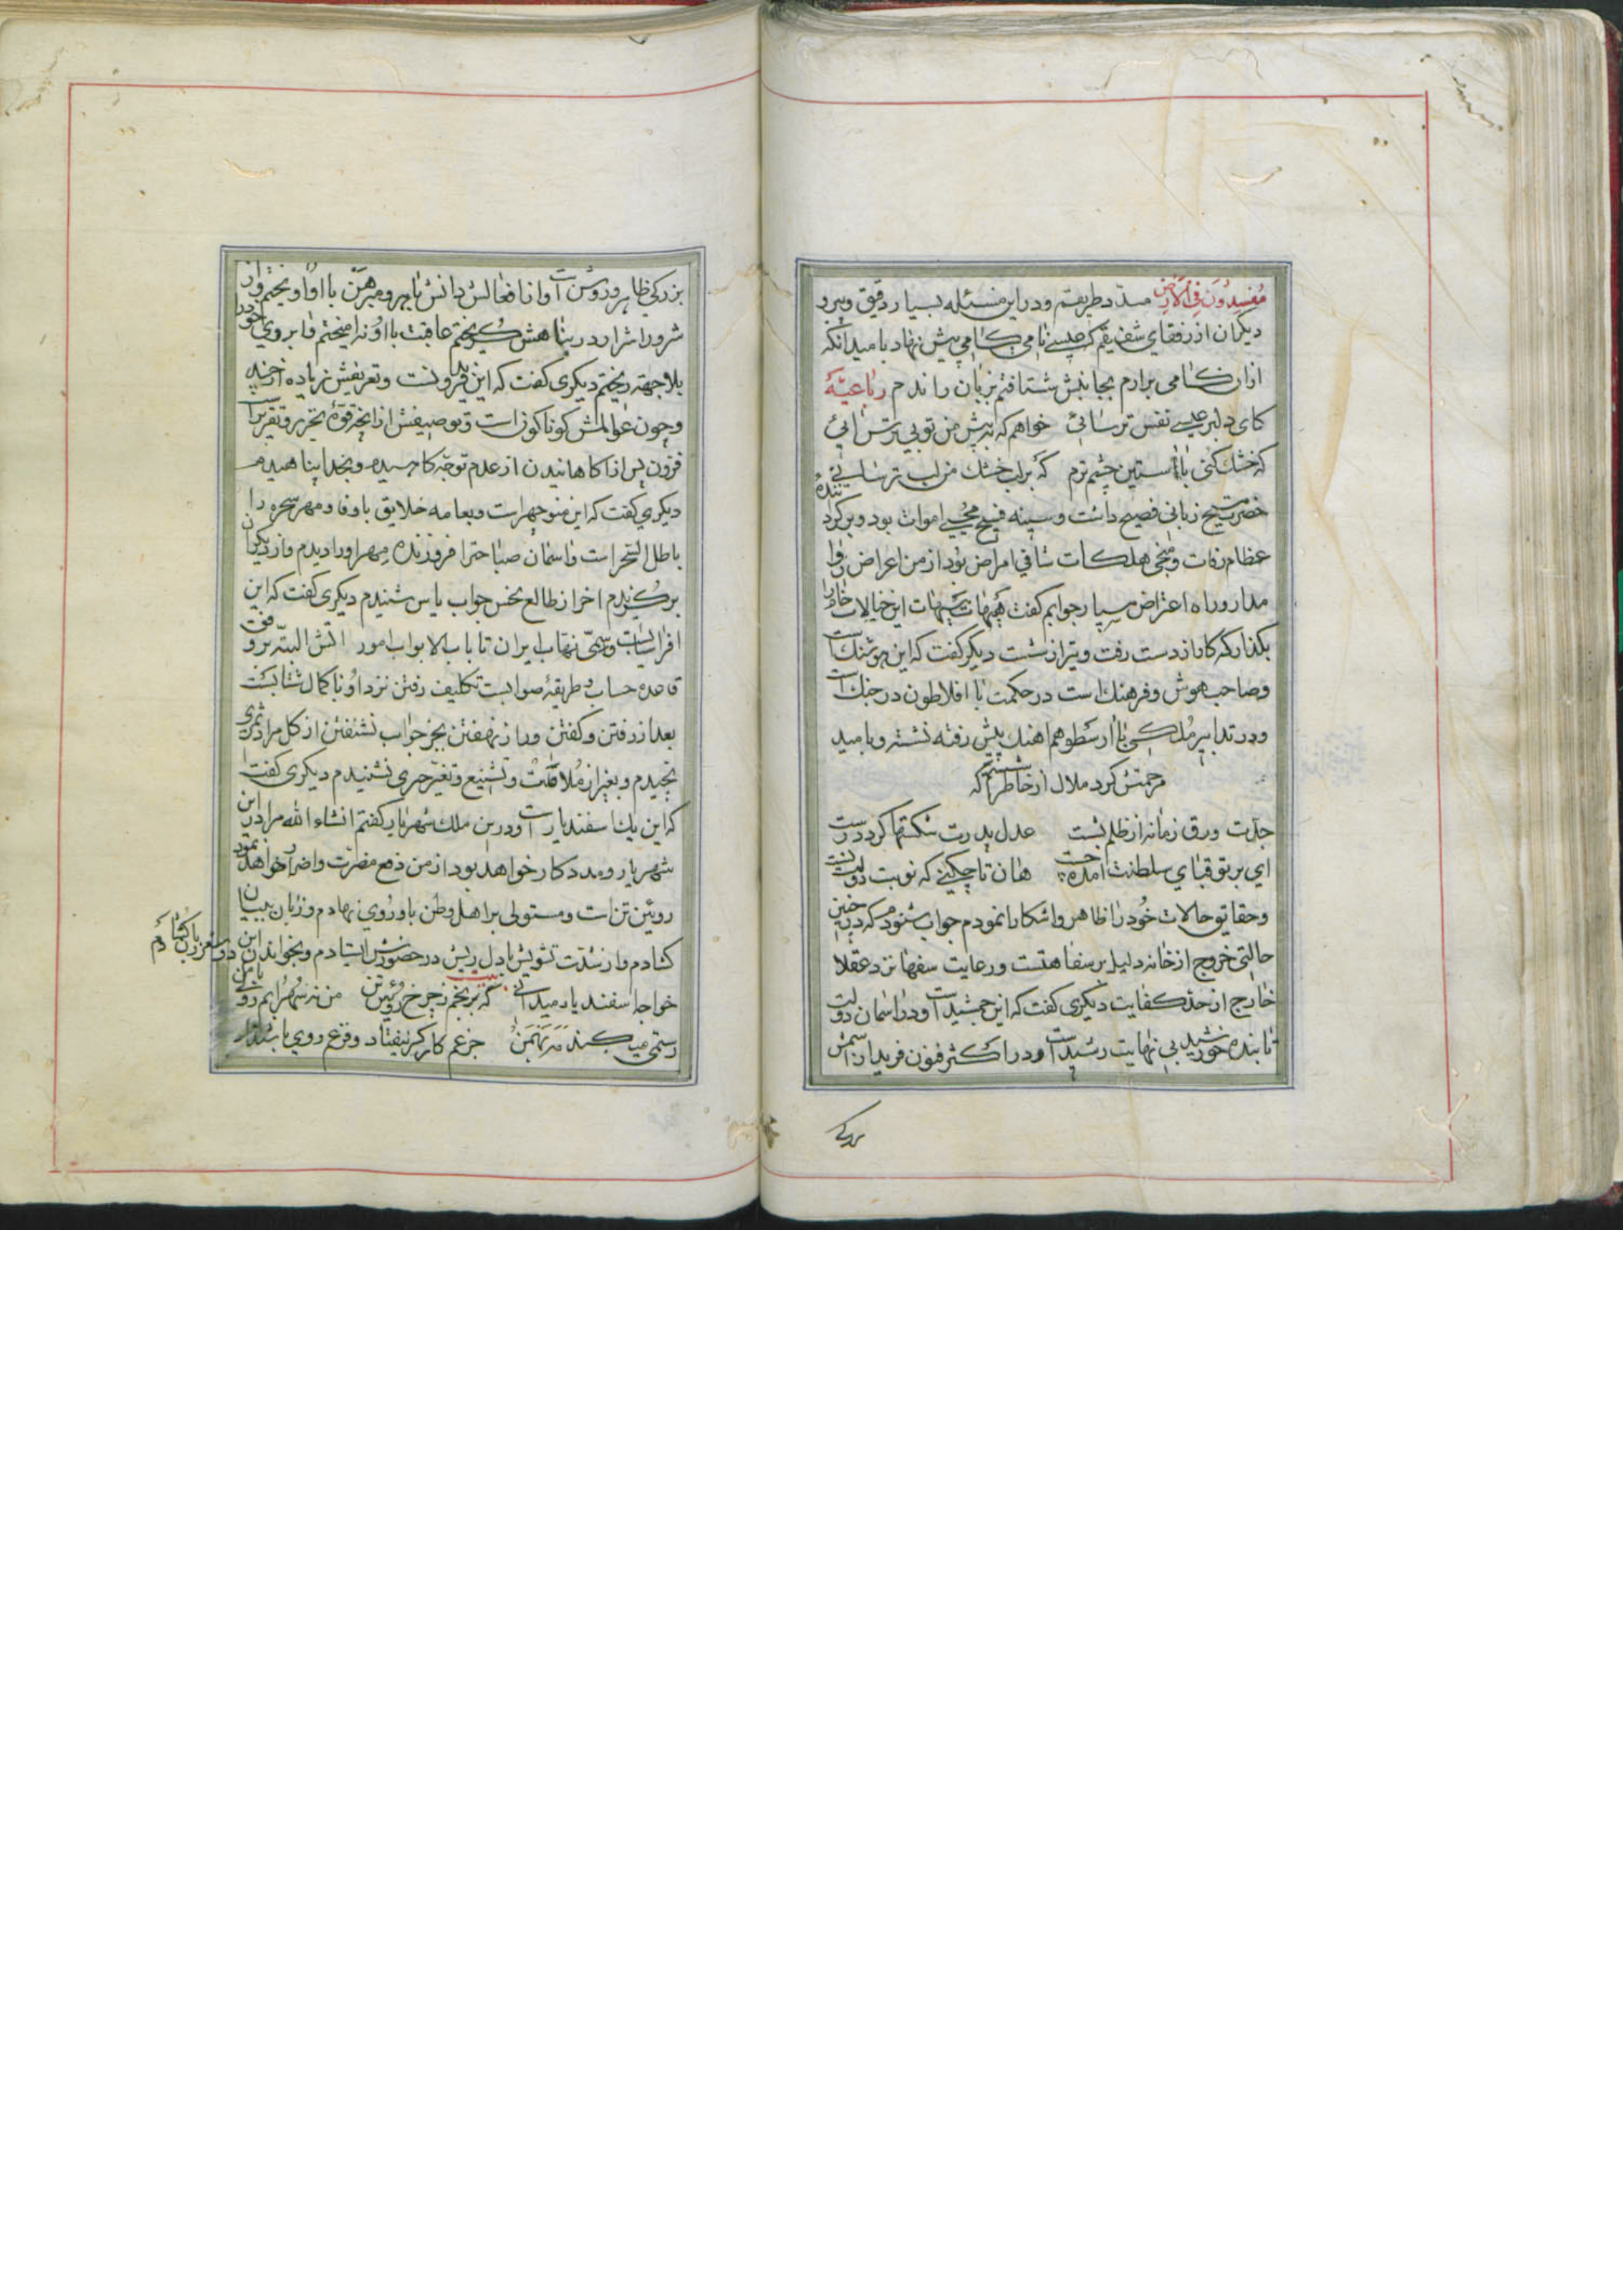 مفسدون فی الارض مسدد طریقم ودر این مسئله بسیار دقیق وپیرو
دیکران از رفقای شفیقم که عیسی نامی کامی پیش نهاد بامید انکه
ازان کامی برارم بجانبش شتافتم بزبان راندم رباعیّه
کای دلبر عیسی نفس ترسائی خواهم که به پیش من توبی ترس ائی
که خشک کنی بااستین چشم ترم که برلب خشک من لب تر سائی
حضرت مسیح زبانی فصیح داشت وسینه فسیح محیی اموات بود وبرکرداننده
عظام رفات ومنجی هلکات شافی امراض بود از من اعراض روا
مدار وراه اعتراض مسپار جوابم کفت هیهات هیهات این خیالات خام را
بکذار که کار از دست رفت وتیر از شست دیکر کفت که این هوشنک است
وصاحب هوش وفرهنک است در حکمت با افلاطون در جنک است
ودر تدابیر ملکی باارسطو هم اهنک پیش رفته نشسته وبامید
مرحمتش کرد ملال از خاطر شستم که
جدّت ورق زمانه از ظلم بشست عدل پدرت شکستها کرد درست
ای بر تو قبای سلطنت امده چست هان تا چکنی که نوبت دولت تست
وحقایق حالات خود را ظاهر واشکارا نمودم جواب شنودم که در چنین
حالتی خروج از خانه دلیل بر سفاهتست ورعایت سفها نزد عقلا
خارج از حدّ کفایت دیکری کفت که این جمشید است ودر اسمان دولت
تابنده خورشید بی نهایت رشید است ودر اکثر فنون فرید از اسمش
بزرکی
بزرکی ظاهر وروشن است وانا فعالش دانش باهر ومبرهن بااو اویختم واز
شرور اشرار در پناهش کریختم عاقبت بااو نیامیختم وابروی خود را
بلاجهة ریختم دیکری کفت که این فریدونست وتعریفش زیاده از حد
وچون عوالمش کوناکون است وتوصیفش از انچه قوّهٔ تحریر وتقریر است
فزون پس از اکاهانیدن از عدم توجّه کام
دیکری کفت که این منوچهر است وبعامه خلایق باوفا ومهر سحره را
باطل السّحر است واسمان صباحترا فروزنده مهر اورا دیدم واز دیکران
برکزیدم اخر از طالع نحس جواب یاس شنیدم دیکری کفت که این
افراسیاب است وسمّی نهّاب ایران تا باب الابواب امور اتش البتّه بر وفق
قاعده حساب وطریقهٔ صوابست تکلیف رفتن نزد او باکمال شتابست
بعد از رفتن وکفتن وراز نهفتن بجز جواب نشنفتن از کل مراد ثمری
نچیدم وبغیر از ملامت وتشنیع وتغیّر حرفی نشنیدم دیکری کفت
که این یک اسفندیار است ودر این ملک شهریار کفتم انشاء الله مرا در این
شهر یار ومددکار خواهد بود از من دفع مضرت واضرار خواهد نمود
روئین تن است ومستولی بر اهل وطن باو روی نهادم وزبان به بیان
کشادم واز شدّت تشویش بادل ریش در حضورش ایستادم وبخواندن این دو شعر زبان کشادم
خواجه اسفندیار میدانی که برنجم ز چرخ روئین تن من نه سهرابم وولی با من
رستمی میکند مه بهمن جز غم کار کر نیفتاد وقرع